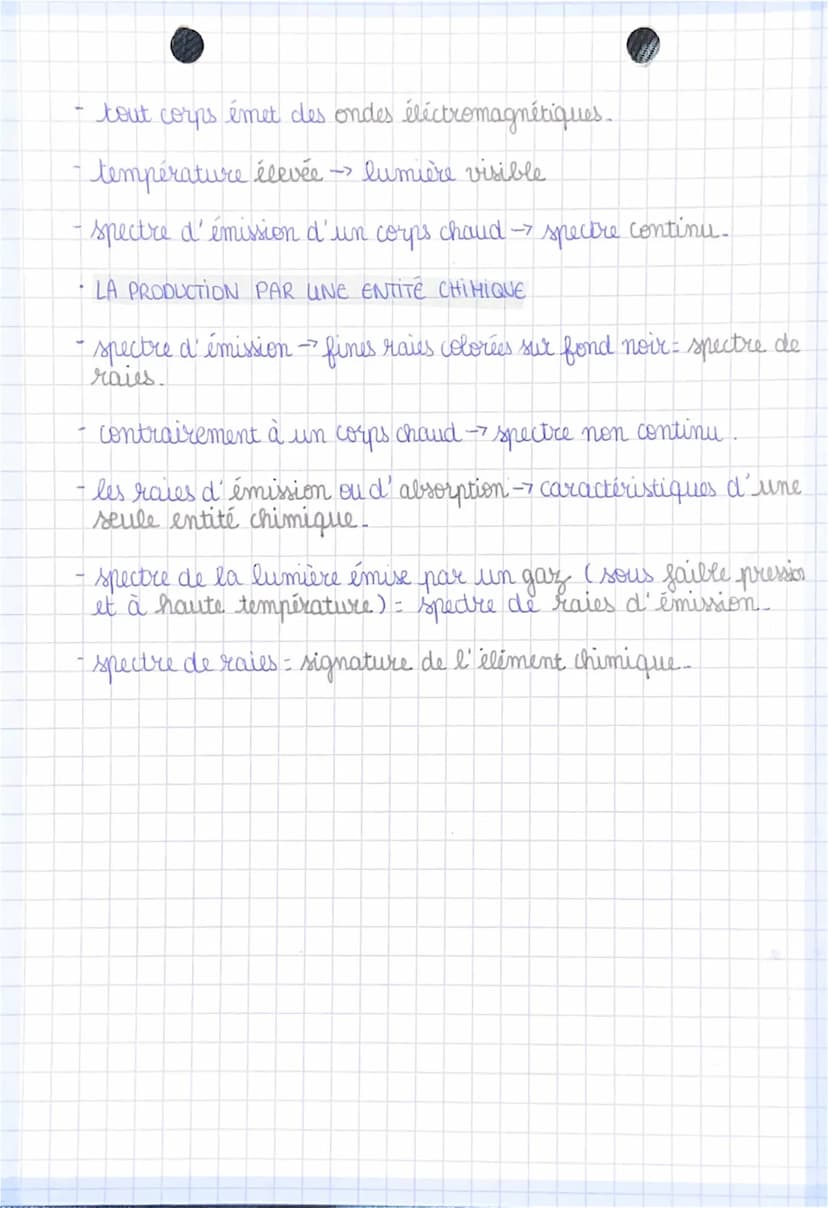 - tout corps émet des ondes éléctromagnétiques.
- température élevée → lumière visible
- spectre d'émission d'un corps chaud → spectre continu.
• LA PRODUCTION PAR UNE ENTITÉ CHIMIQUE
- spectre d'émission → fines raies colorées sur fond noir = spectre de
raies.
- contrairement à un corps chaud → spectre non continu.
- les raies d'émission ou d'absorption → caractéristiques d'une
seule entité chimique.
- spectre de la lumière émise par un gaz (sous faible pression
et à haute température) = spectre de raies d'émission.
- spectre de raies = signature de l'élément chimique.